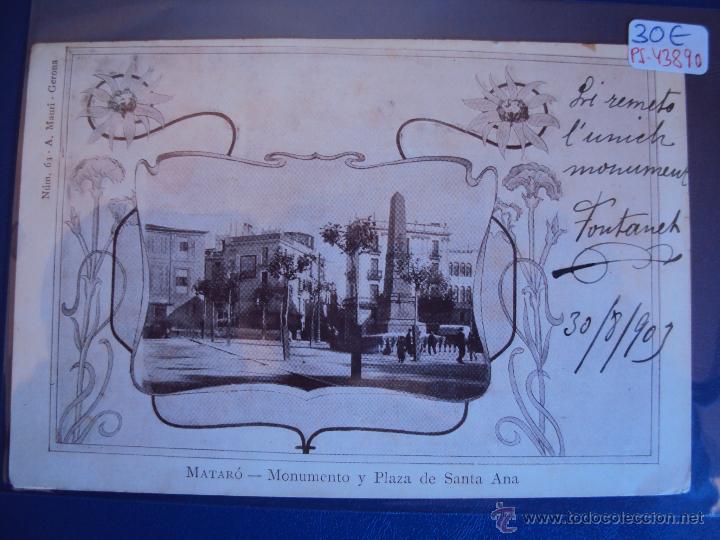 30€
PS-43890
Núm. 63 - A. Mauri - Gerona
Li remeto
l'unich
monument
Fontanet
30/8/903
MATARÓ — Monumento y Plaza de Santa Ana
www.todocoleccion.net